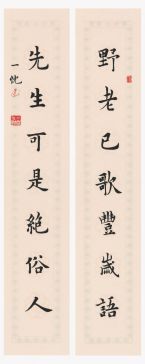 野老已歌豐歲語
先生可是絕俗人
一飽